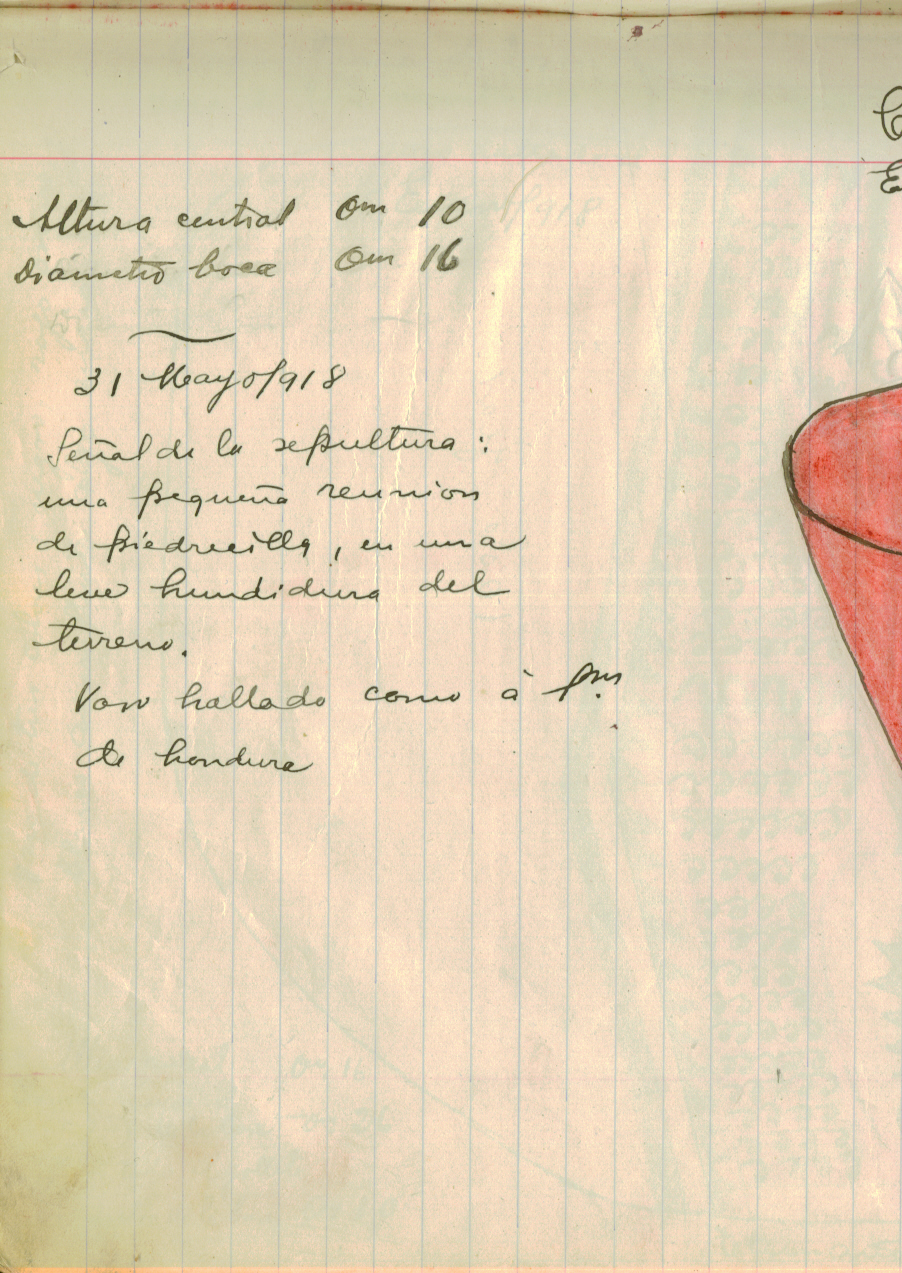 Altura central 0m 10
Diámetro boca 0m 16
31 Mayo/918
Señal de la sepultura:
una pequeña reunion
de piedrecilla, en una
leve hundidura del
terreno.
Vaso hallado como à 1m.
de hondura